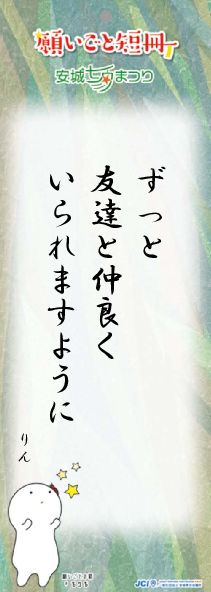 願いごと短冊
安城七夕まつり
ずっと
友達と仲良く
いられますように
りん
JCI